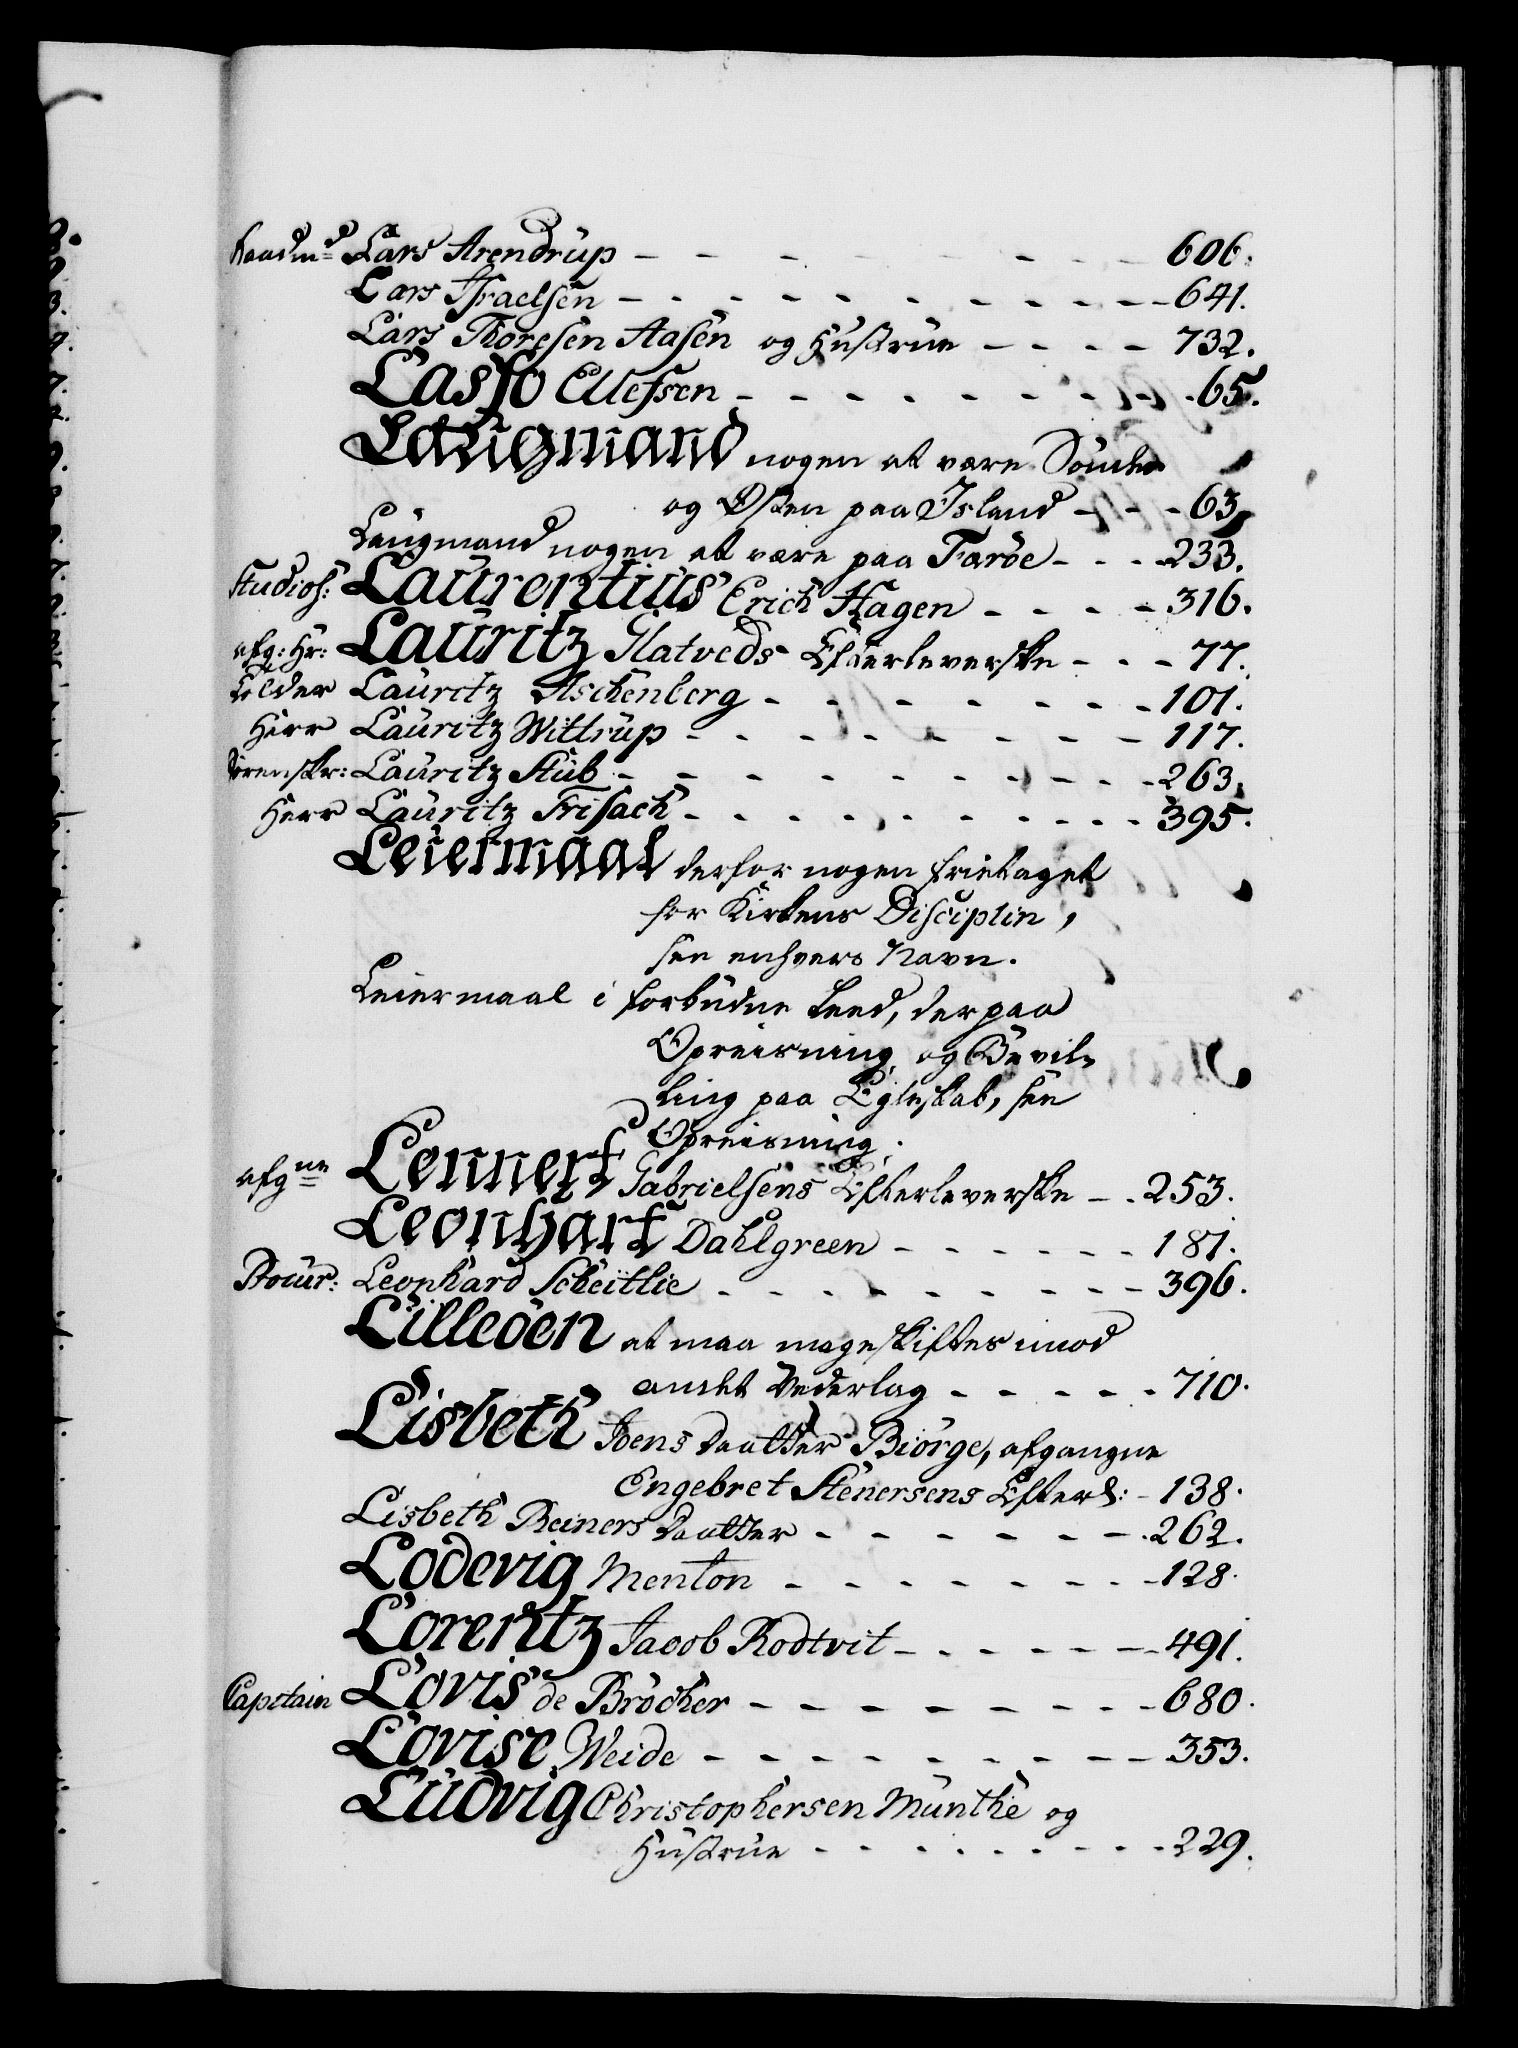 Raadmd Lars Arendrup - - - - - - - - - 606.
Lars Israelsen - - - - - - - - - - 641.
Lars Thoresen Aasen og Hustrue - - - - 732.
Lasse Ellefsen - - - - - - - - - 65.
Laugmand nogen at være Sönder
og Østen paa Island - - - 63.
Laugmand nogen at være paa Færöe - - - 233.
Studios: Laurentius Erich Hagen - - - - 316.
afg: Hr: Lauritz Glatveds Efterleverske - - - 77.
Lauritz Aschenberg - - - - - - - - 101.
Herr Lauritz Wittrup - - - - - - - - - 117.
Sorenskr: Lauritz Stub - - - - - - - - - - 263.
Herr Lauritz Frisach - - - - - - - - - - 395.
Leiermaal derfor nogen frietaget
for Kirkens Disciplin,
see enhvers Navn.
Leiermaal i forbudne Leed, derpaa
Opreisning og Bevil-
ling paa Egteskab, see
Opreisning.
afgne Lennert Gabrielsens Efterleverske - - 253.
Leonhart Dahlgreen - - - - - - 187.
Procur: Leonhard Scheitlie - - - - - - - - - 396.
Lilleöen at maa mageskiftes imod
andet Vederlag - - - - - 710.
Lisbeth Joens Daatter Biörge, afgangne
Engebret Stenersens Efterl: - 138.
Lisbeth Reiners Daatter - - - - - - - 262.
Lodevig Menton - - - - - - - - 128.
Lorentz Jacob Rodtvit - - - - - - 491.
Captain Lovis de Bröcher - - - - - - - - 680.
Lovise Weide - - - - - - - - - 353.
Ludvig Christophersen Munthe og
Hustrue - - - - - - - - - 229.